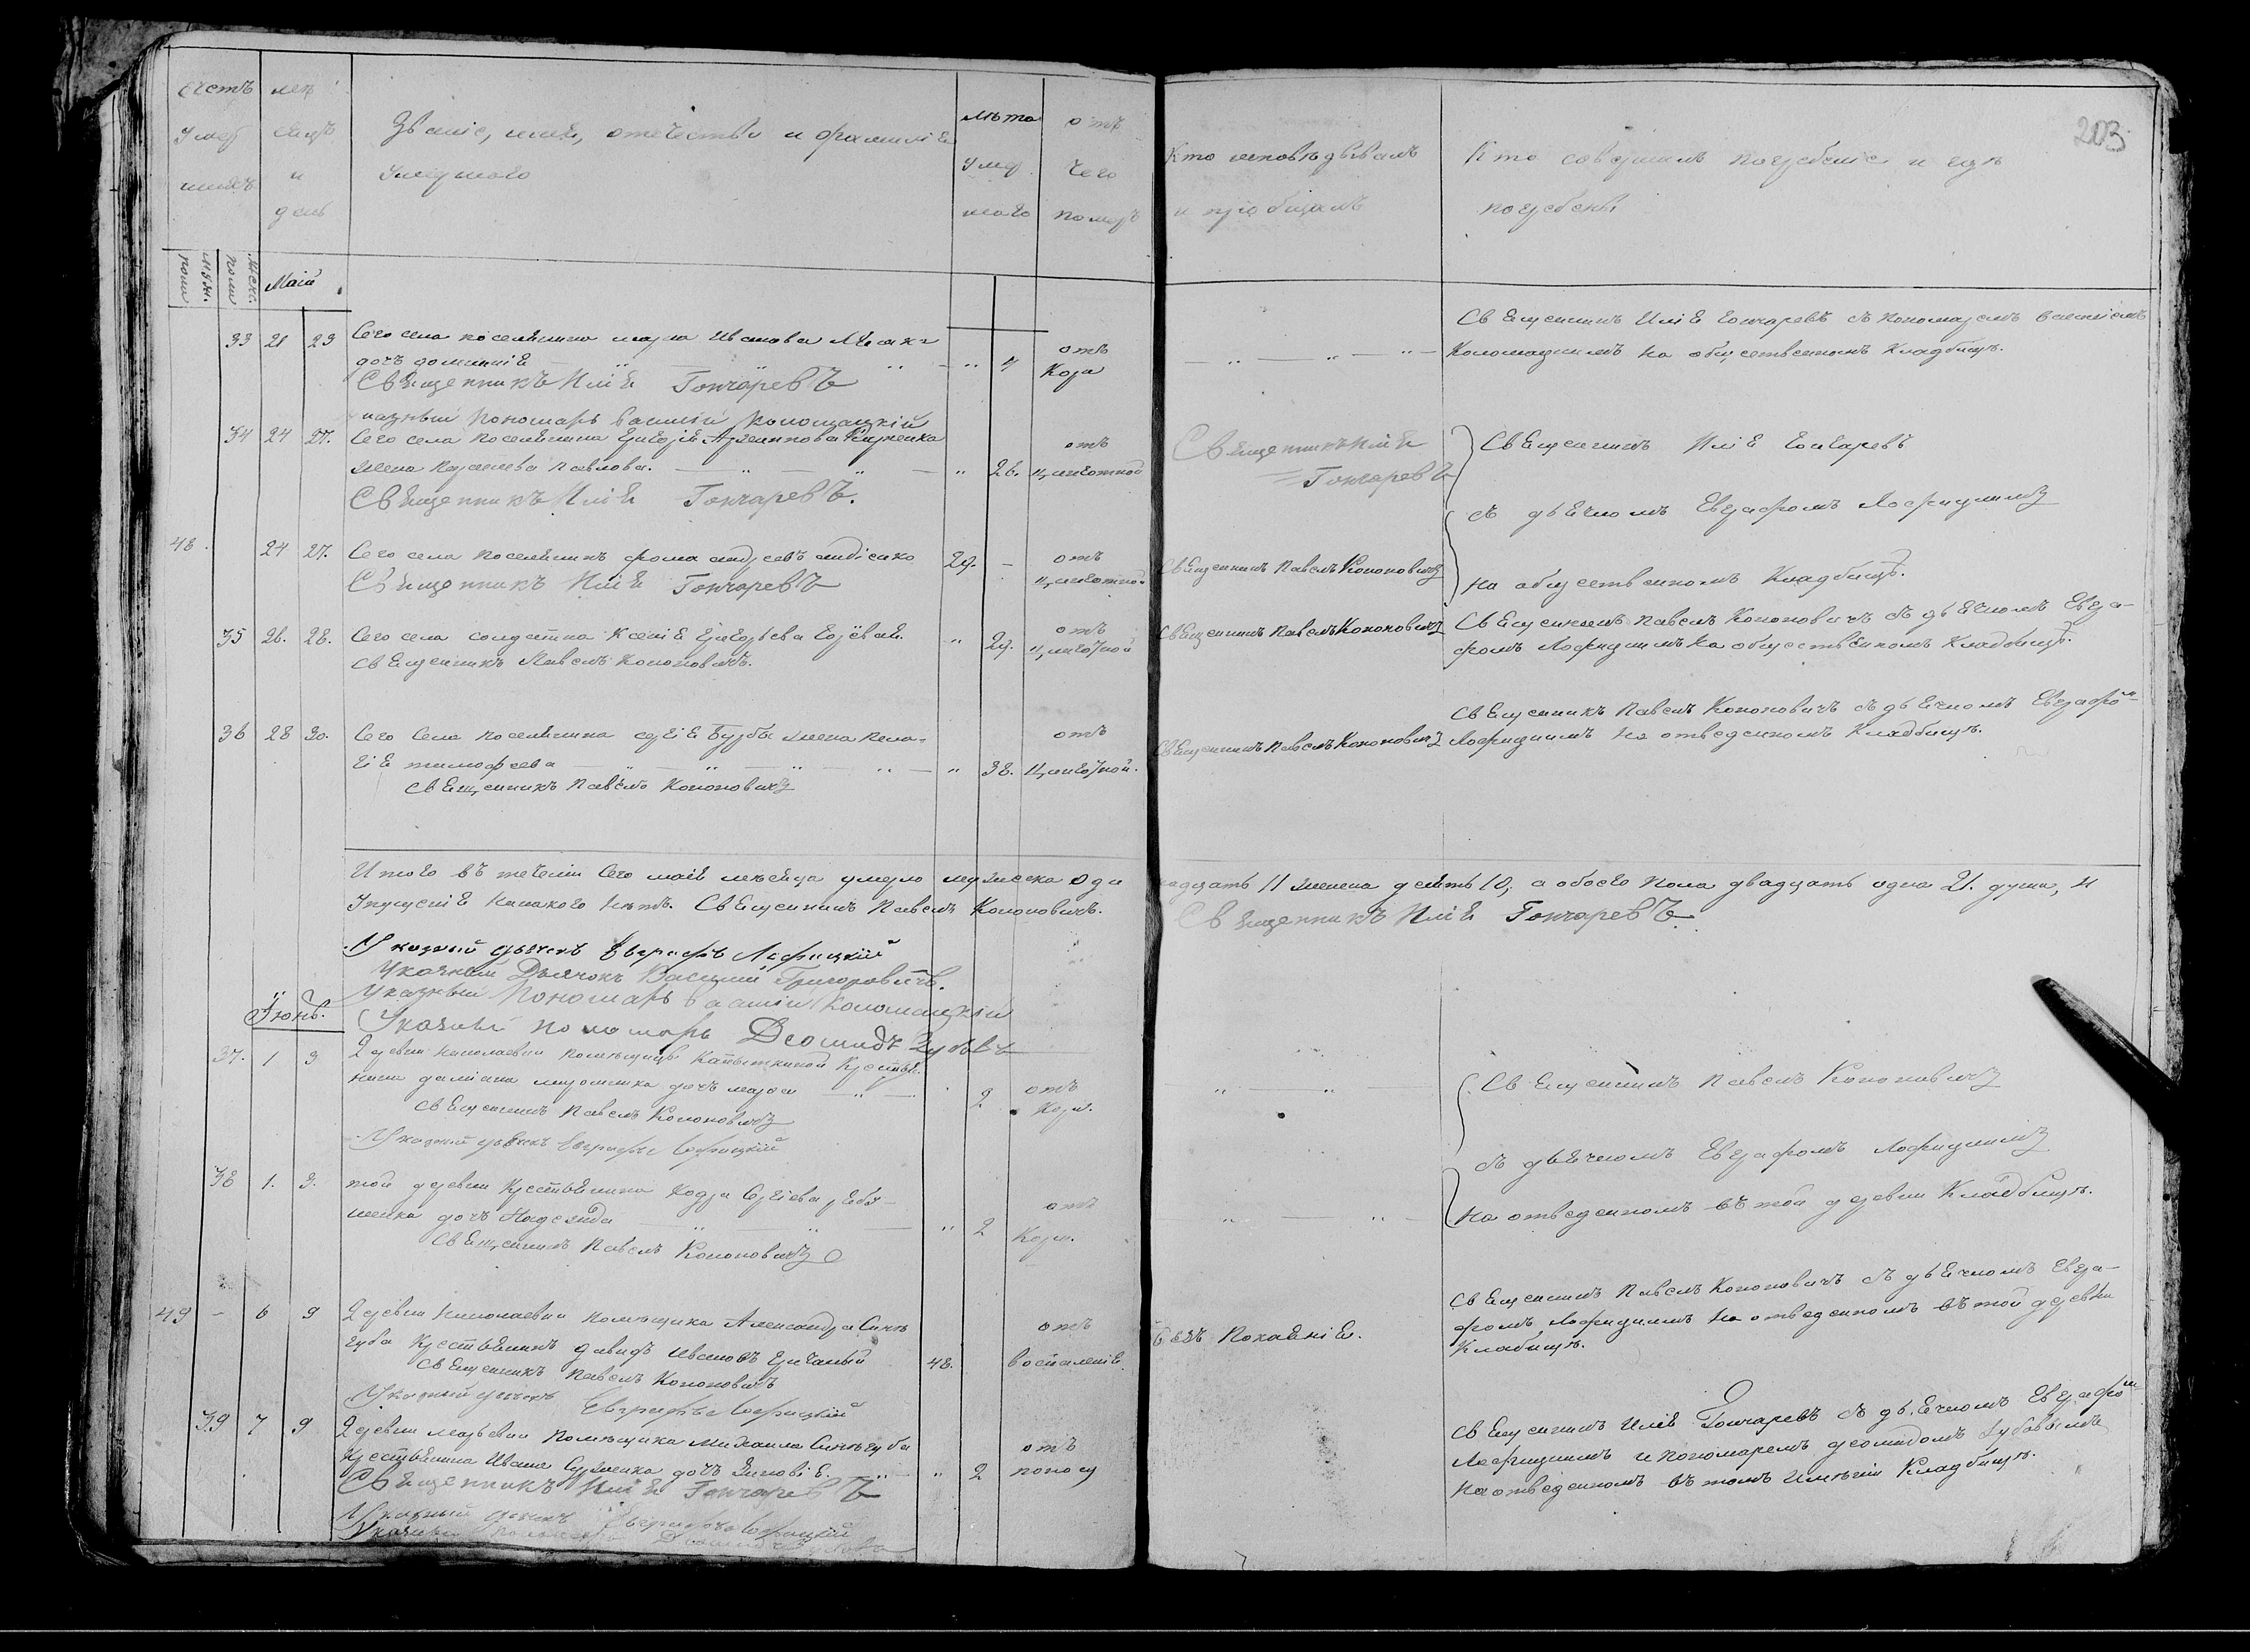 203
Счетъ умершихъ
мѣсяцъ и день
Званіе, имя, отечество и фамилія
умершаго
лѣта умершаго
отъ чего померъ
Кто исповѣдывалъ
и пріобщалъ
Кто совершилъ погребеніе и гдѣ
погребены
муж. пола
женс. пола
Маій
33 21 23 Сего села поселянина Иванова
дочъ " " " 4 отъ Кора
Священникъ Илія Гончаревъ
" " "
Священникъ Илія Гончаревъ съ пономаремъ Василіемъ
Коломацкимъ на общественномъ кладбищѣ.
указный пономарь Василій Коломацкій
34 24 27. Сего села поселянина Григорія
жена Павлова. " " " 26. отъ
Священникъ Илія Гончаревъ.
Священникъ Илія
Гончаревъ
Священникъ Илія Гончаревъ
съ дьячкомъ Евграфомъ Лофицкимъ
на общественномъ кладбищѣ.
48. 24 27. Сего села поселянинъ Фома 29. - отъ
Священникъ Илія Гончаревъ
Священникъ Павелъ Кононовичъ
35 26. 28. Сего села солдатка Ксенія Григорьева " 29. отъ
Священникъ Павелъ Кононовичъ.
Священникъ Павелъ Кононовичъ
Священникъ Павелъ Кононовичъ съ дьячкомъ Евгра-
фомъ Лофицкимъ на общественномъ кладбищѣ.
36 28 30. Сего села поселянина Сергія Бурбы жена Пела-
гія Тимофеева " " " " " 38. отъ
Священникъ Павелъ Кононовичъ
Священникъ Павелъ Кононовичъ
Священникъ Павелъ Кононовичъ съ дьячкомъ Евграфомъ
Лофицкимъ на отведенномъ кладбищѣ.
Итого въ теченіи сего маія мѣсяца умерло мужеска одинадцать 11 женска десять 10, а обоего пола двадцать одна 21. душа, и
упущенія никакого нѣтъ. Священникъ Павелъ Кононовичъ.
Священникъ Илія Гончаревъ.
Указный дьячекъ Евграфъ Лофицкій
Указный Дьячокъ Василій Григоровичъ.
Указный Пономарь Василій Коломацкій
Указный пономарь Деомидъ Зубовъ
Іюнь.
37. 1 3 Деревни Николаевки помѣщицы крестья-
нина дочъ " 2 отъ Кори.
Священникъ Павелъ Кононовичъ
Указный дьячекъ Евграфъ Лофицкій
" "
Священникъ Павелъ Кононовичъ
съ дьячкомъ Евграфомъ Лофицкимъ
на отведенномъ въ той деревни кладбищѣ.
38 1. 3. той деревни крестьянина Сергіева
дочъ Надежда " " " 2 отъ Кори.
Священникъ Павелъ Кононовичъ
" "
49 - 6 9 Деревни Николаевки помѣщика Александра Синя-
губа крестьянинъ Давидъ Ивановъ 48. отъ воспаленія.
Священникъ Павелъ Кононовичъ
Указный дьячекъ Евграфъ Лофицкій
безъ покаянія.
Священникъ Павелъ Кононовичъ съ дьячкомъ Евгра-
фомъ Лофицкимъ на отведенномъ въ той деревни
кладбищѣ.
39 7 9 Деревни помѣщика Михаила Синягуба
крестьянина Ивана дочъ Зиновія. " " 2 отъ поносу
Священникъ Илія Гончаревъ
Указный дьячекъ Евграфъ Лофицкій
Указный пономарь Деомидъ Зубовъ
Священникъ Илія Гончаревъ съ дьячкомъ Евграфомъ
Лофицкимъ и пономаремъ Деомидомъ Зубовымъ
на отведенномъ въ томъ имѣніи кладбищѣ.